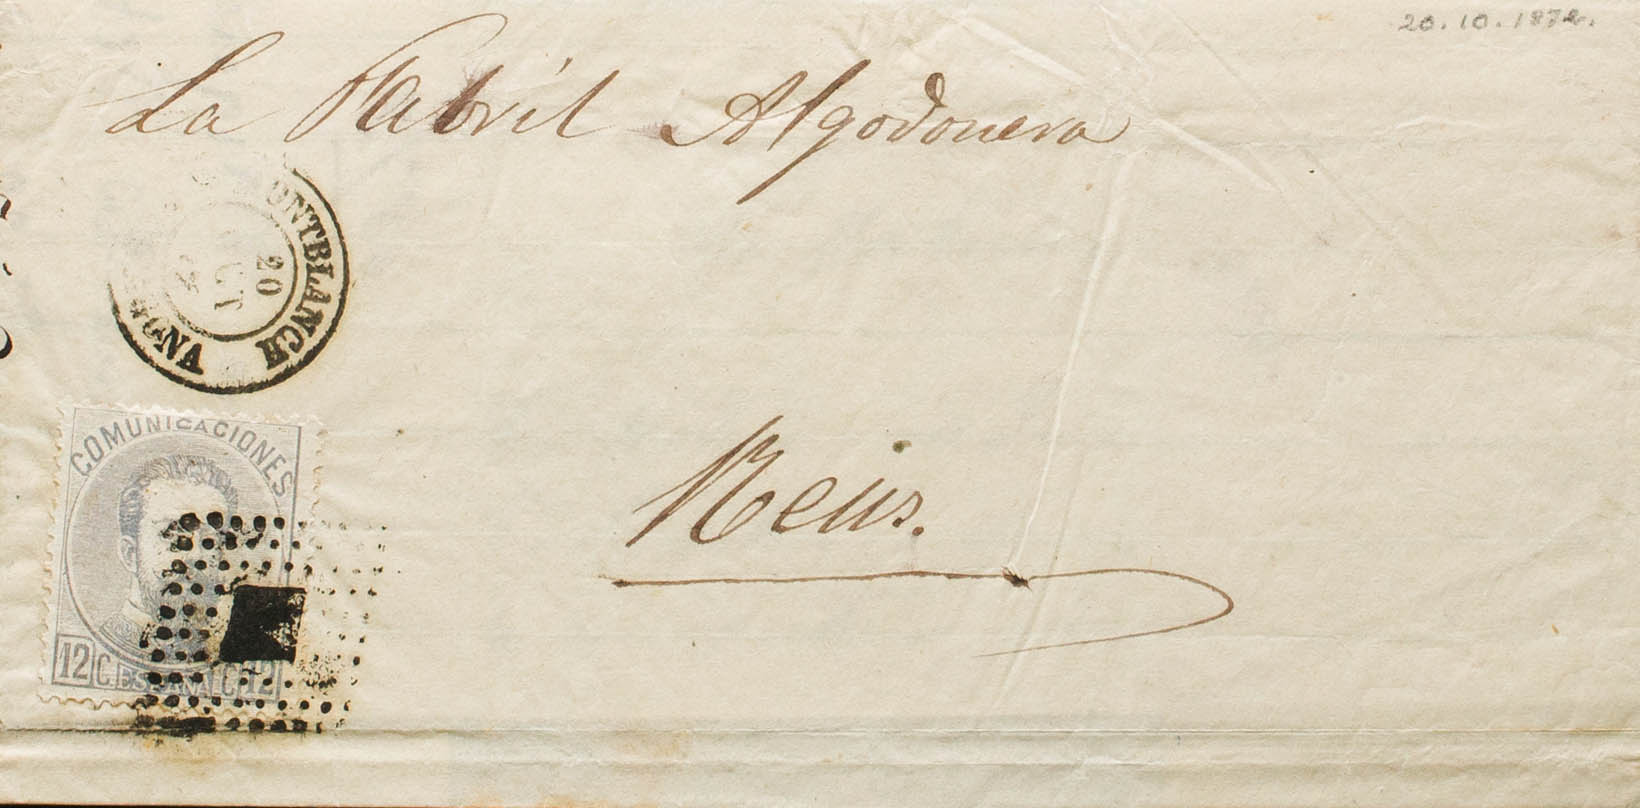 20.10.1872.
La Fabríl Algodonera
MONTBLANCH
20
OCT
GONA
COMUNICACIONES
Reus.
12 C. ESPAÑA C. 12